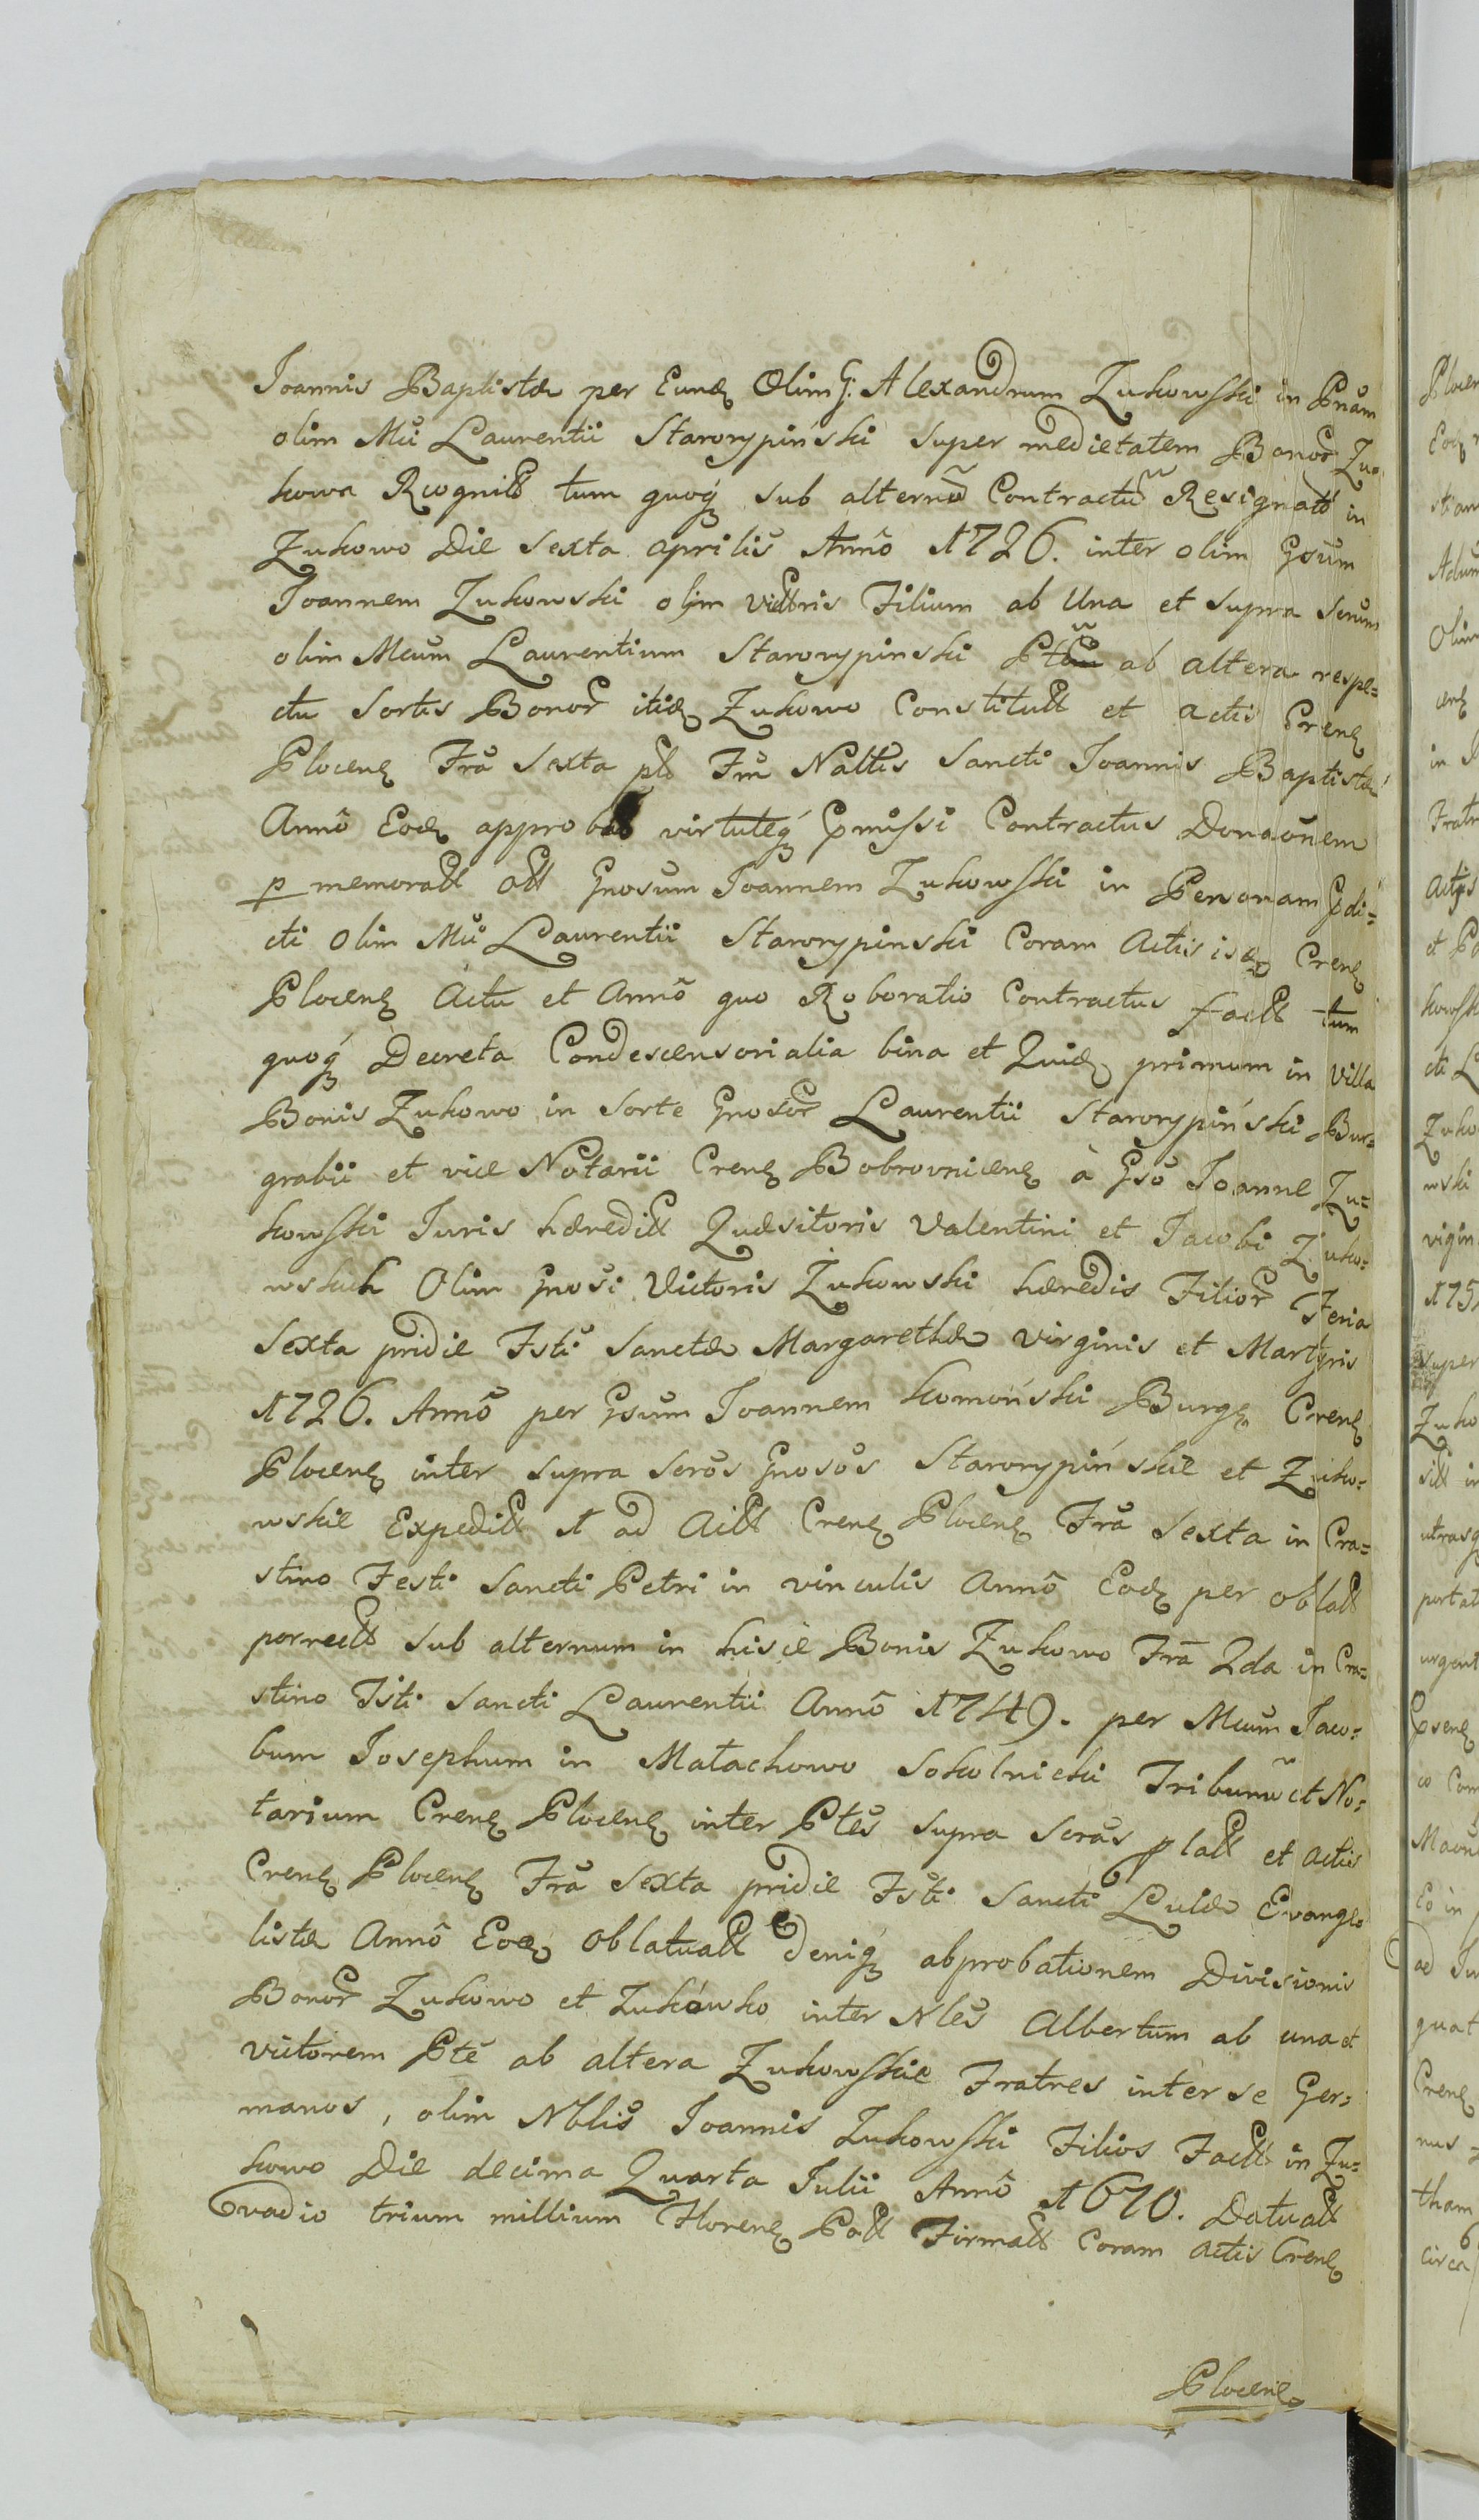 Joannis Baptistæ per Eundꝫ Olim G. Alexandrum Zukowski in Pnām
olim Mci Laurentii Starorypiński super medietatem Bonor Zu-
kowa Rcognitt tum quoqꝫ sub alternū Contractū Resignatt in
Zukowo Die Sexta Aprilis Annô 1726. inter olim Gsum
Joannem Zukowski olim Victoris Filium ab Una et supra scrum
olim Mcum Laurentium Starorypinski Ptē ab altera respe=
ctu Sortis Bonor itidꝫ Zukowo Constitutt et actis Crenꝫ
Plocenꝫ Frā Sexta pt Ftū Naltis Sancti Joannis Baptistæ
Annô Eodꝫ approbat virtuteqꝫ Pmissi Contractus Donaōnem
p memoratt Ott Gnosum Joannem Zukowski in Personam Pdi=
cti Olim Mci Laurentii Starorypinski Coram Actis isdꝫ Crenꝫ
Plocenꝫ Actu et Annô quo Roboratio Contractus factt tum
quoqꝫ Decreta Condescensorialia bina et Quidꝫ primum in Villa
Bonis Zukowo in Sorte Gnosor Laurentii Starorypiński Bur=
grabii et vice Notarii Crenꝫ Bobrovnicenꝫ à Gso Joanne Zu=
kowski Juris hæreditt Quæsitoris Valentini et Jacobi Zuko=
wskich Olim Gnosi Victoris Żukowski hæredis Filior Feria
Sexta pridie Fsti Sanctæ Margarethæ Virginis et Martyris
1726. Annô per Gsum Joannem Komoński Burgꝫ Crenꝫ
Plocenꝫ inter supra scros Gnosos Starorypińskie et Zuko=
wskie Expeditt et ad Actt Crenꝫ Plocenꝫ Frā Sexta in Cra=
stino Festi Sancti Petri in vinculis Annô Eodꝫ per oblatt
porrectt Sub alternum in hisce Bonis Zukowo Frā 2da in Cra=
stino Fsti Sancti Laurentii Annô 1749. per Mcum Jaco=
bum Josephum in Małachowo Sokolnicki Tribunū et No=
tarium Crenꝫ Plocenꝫ inter Ptes supra scras platt et actis
Crenꝫ Plocenꝫ Frā Sexta pridie Fsti Sancti Lucæ Evange=
listæ Annô Eodꝫ Oblatuatt deniqꝫ abprobationem Divisionis
Bonor Zukowo et Zukówko inter Nles Albertum ab una et
Victorem Pte ab altera Zukowskie Fratres inter se Ger=
manos, olim Nblis Joannis Zukowski Filios Factt in Zu=
kowo Die decima Quarta Julii Annô 1670. Datuatt
vadio trium millium Florenꝫ Polt Firmatt Coram actis Crenꝫ
Plocenꝫ